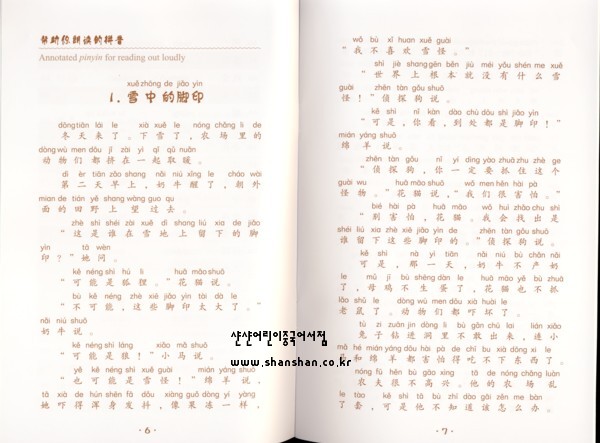 帮助你朗读的拼音
Annotated pinyin for reading out loudly
xuě zhōng de jiǎo yìn
1. 雪中的脚印
dōng tiān lái le xià xuě le nóng chǎng lǐ de
冬天来了。下雪了，农场里的
dòng wù men dōu jǐ zài yì qǐ qǔ nuǎn
动物们都挤在一起取暖。
dì èr tiān zǎo shang nǎi niú xǐng le cháo wài
第二天早上，奶牛醒了，朝外
mian de tián yě shang wàng guo qu
面的田野上望过去。
zhè shì shéi zài xuě dì shang liú xia de jiǎo
“这是谁在雪地上留下的脚
yìn tā wèn
印？”她问。
kě néng shì hú li huā māo shuō
“可能是狐狸。”花猫说。
bù kě néng zhè xiē jiǎo yìn tài dà le
“不可能，这些脚印太大了。”
nǎi niú shuō
奶牛说。
kě néng shì láng xiǎo mǎ shuō
“可能是狼！”小马说。
yě kě néng shì xuě guài mián yáng shuō
“也可能是雪怪！”绵羊说，
tā xià de hún shēn fā dǒu xiàng guǒ dòng yí yàng
她吓得浑身发抖，像果冻一样，
· 6 ·
wǒ bù xǐ huan xuě guài
“我不喜欢雪怪。”
shì jiè shang gēn běn jiù méi yǒu shén me xuě
“世界上根本就没有什么雪
guài zhēn tàn gǒu shuō
怪！”侦探狗说。
kě shì nǐ kàn dào chù dōu shì jiǎo yìn
“可是，你看，到处都是脚印！”
mián yáng shuō
绵羊说。
zhēn tàn gǒu nǐ yí dìng yào zhuā zhù zhè ge
“侦探狗，你一定要抓住这个
guài wu huā māo shuō wǒ men hěn hài pà
怪物。”花猫说，“我们很害怕。”
bié hài pà huā māo wǒ huì zhǎo chu shì
“别害怕，花猫。我会找出是
shéi liú xia zhè xiē jiǎo yìn de zhēn tàn gǒu shuō
谁留下这些脚印的。”侦探狗说。
kě shì nà yì tiān nǎi niú bù chǎn nǎi
可是，那一天，奶牛不产奶
le mǔ jī bù shēng dàn le huā māo yě bù zhuā
了，母鸡不生蛋了，花猫也不抓
lǎo shǔ le dòng wù men dōu xià huài le
老鼠了。动物们都吓坏了。
tù zi zuān jìn dòng li bù gǎn chū lai lián xiǎo
兔子钻进洞里不敢出来，连小
mǎ hé mián yáng dōu hài pà de chī bu xià dōng xi le
马和绵羊都害怕得吃不下东西了。
nóng fū hěn bù gāo xìng tā de nóng chǎng luàn
农夫很不高兴。他的农场乱
le tào kě shì tā bù zhī dào gāi zěn me bàn
了套，可是他不知道该怎么办。
· 7 ·
샨샨어린이중국어서점
www.shanshan.co.kr